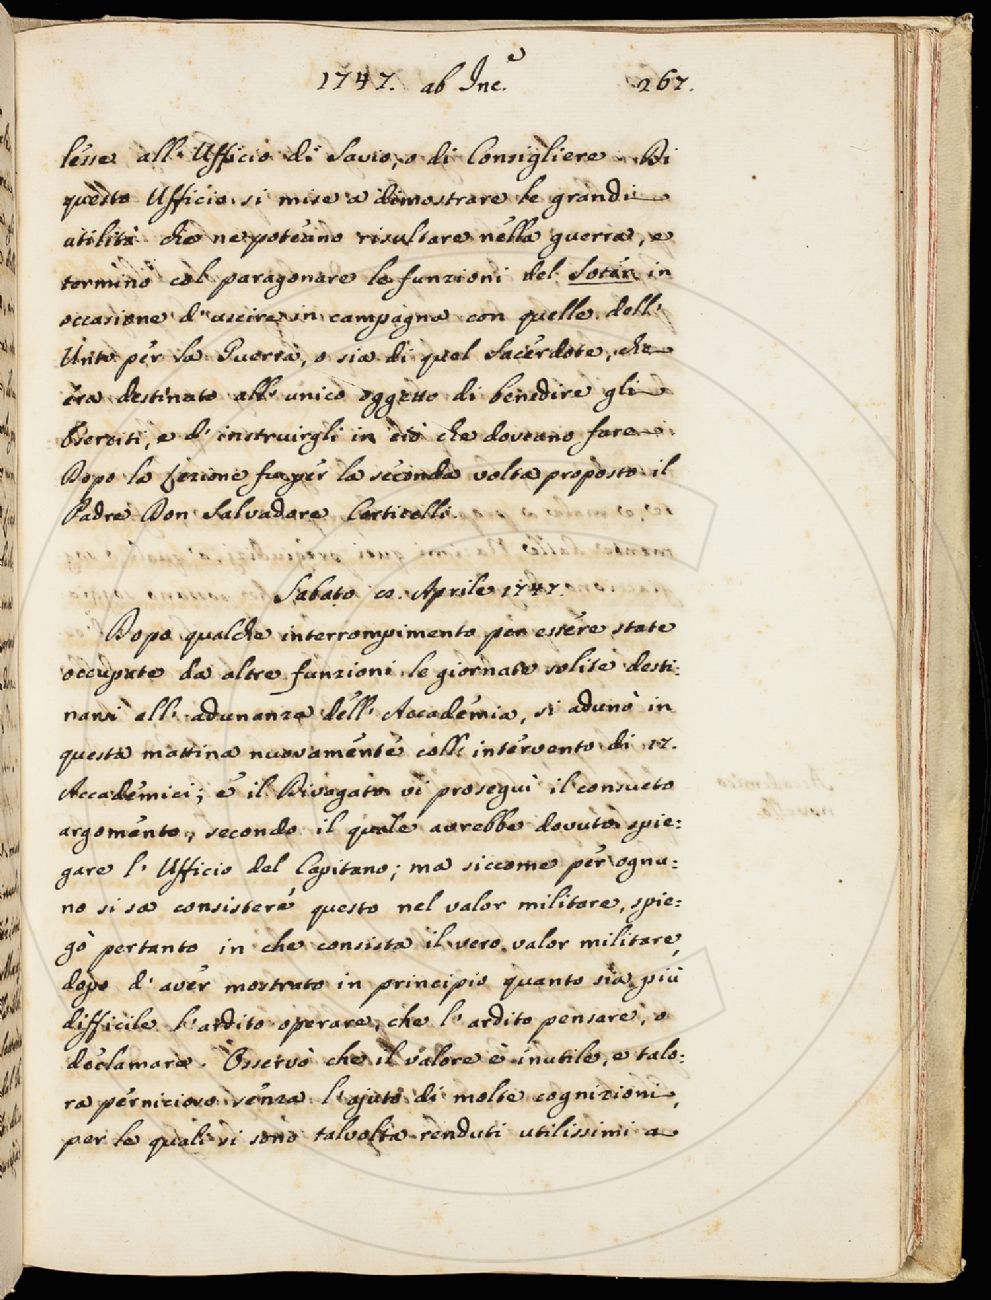 1747. ab Inc.e 267.
lesse all' Ufficio di Savio, o di Consigliere. Di
questo Ufficio si mise a dimostrare le grandi
utilità che ne poteano risultare nella guerra, e
terminò col paragonare le funzioni del Sotan in
occasione d' uscire in campagna con quelle dell'
Unto per la Guerra, o sia di quel Sacerdote, che
era destinato all' unico oggetto di benedire gli
Eserciti, e d' instruirgli in ciò che doveano fare.
Dopo la lezione fu per la seconda volta proposto il
Padre Don Salvadore Corticelli.
Sabato 10. Aprile 1747.
Dopo qualche interrompimento per essere state
occupate da altre funzioni le giornate solite desti=
narsi all' adunanza dell' Accademia, si adunò in
questa mattina nuovamente coll' intervento di 17.
Accademici; e il Divagato vi proseguì il consueto
argomento, secondo il quale avrebbe dovuto spie=
gare l' Ufficio del Capitano; ma siccome per ognu=
no si sa consistere questo nel valor militare, spie=
gò pertanto in che consista il vero valor militare,
dopo d' aver mostrato in principio quanto sia più
difficile l' ardito operare, che l' ardito pensare, o
declamare. Osservò che il valore è inutile, e talo=
ra pernicioso senza l' ajuto di molte cognizioni,
per le quali si sono talvolta renduti utilissimi a